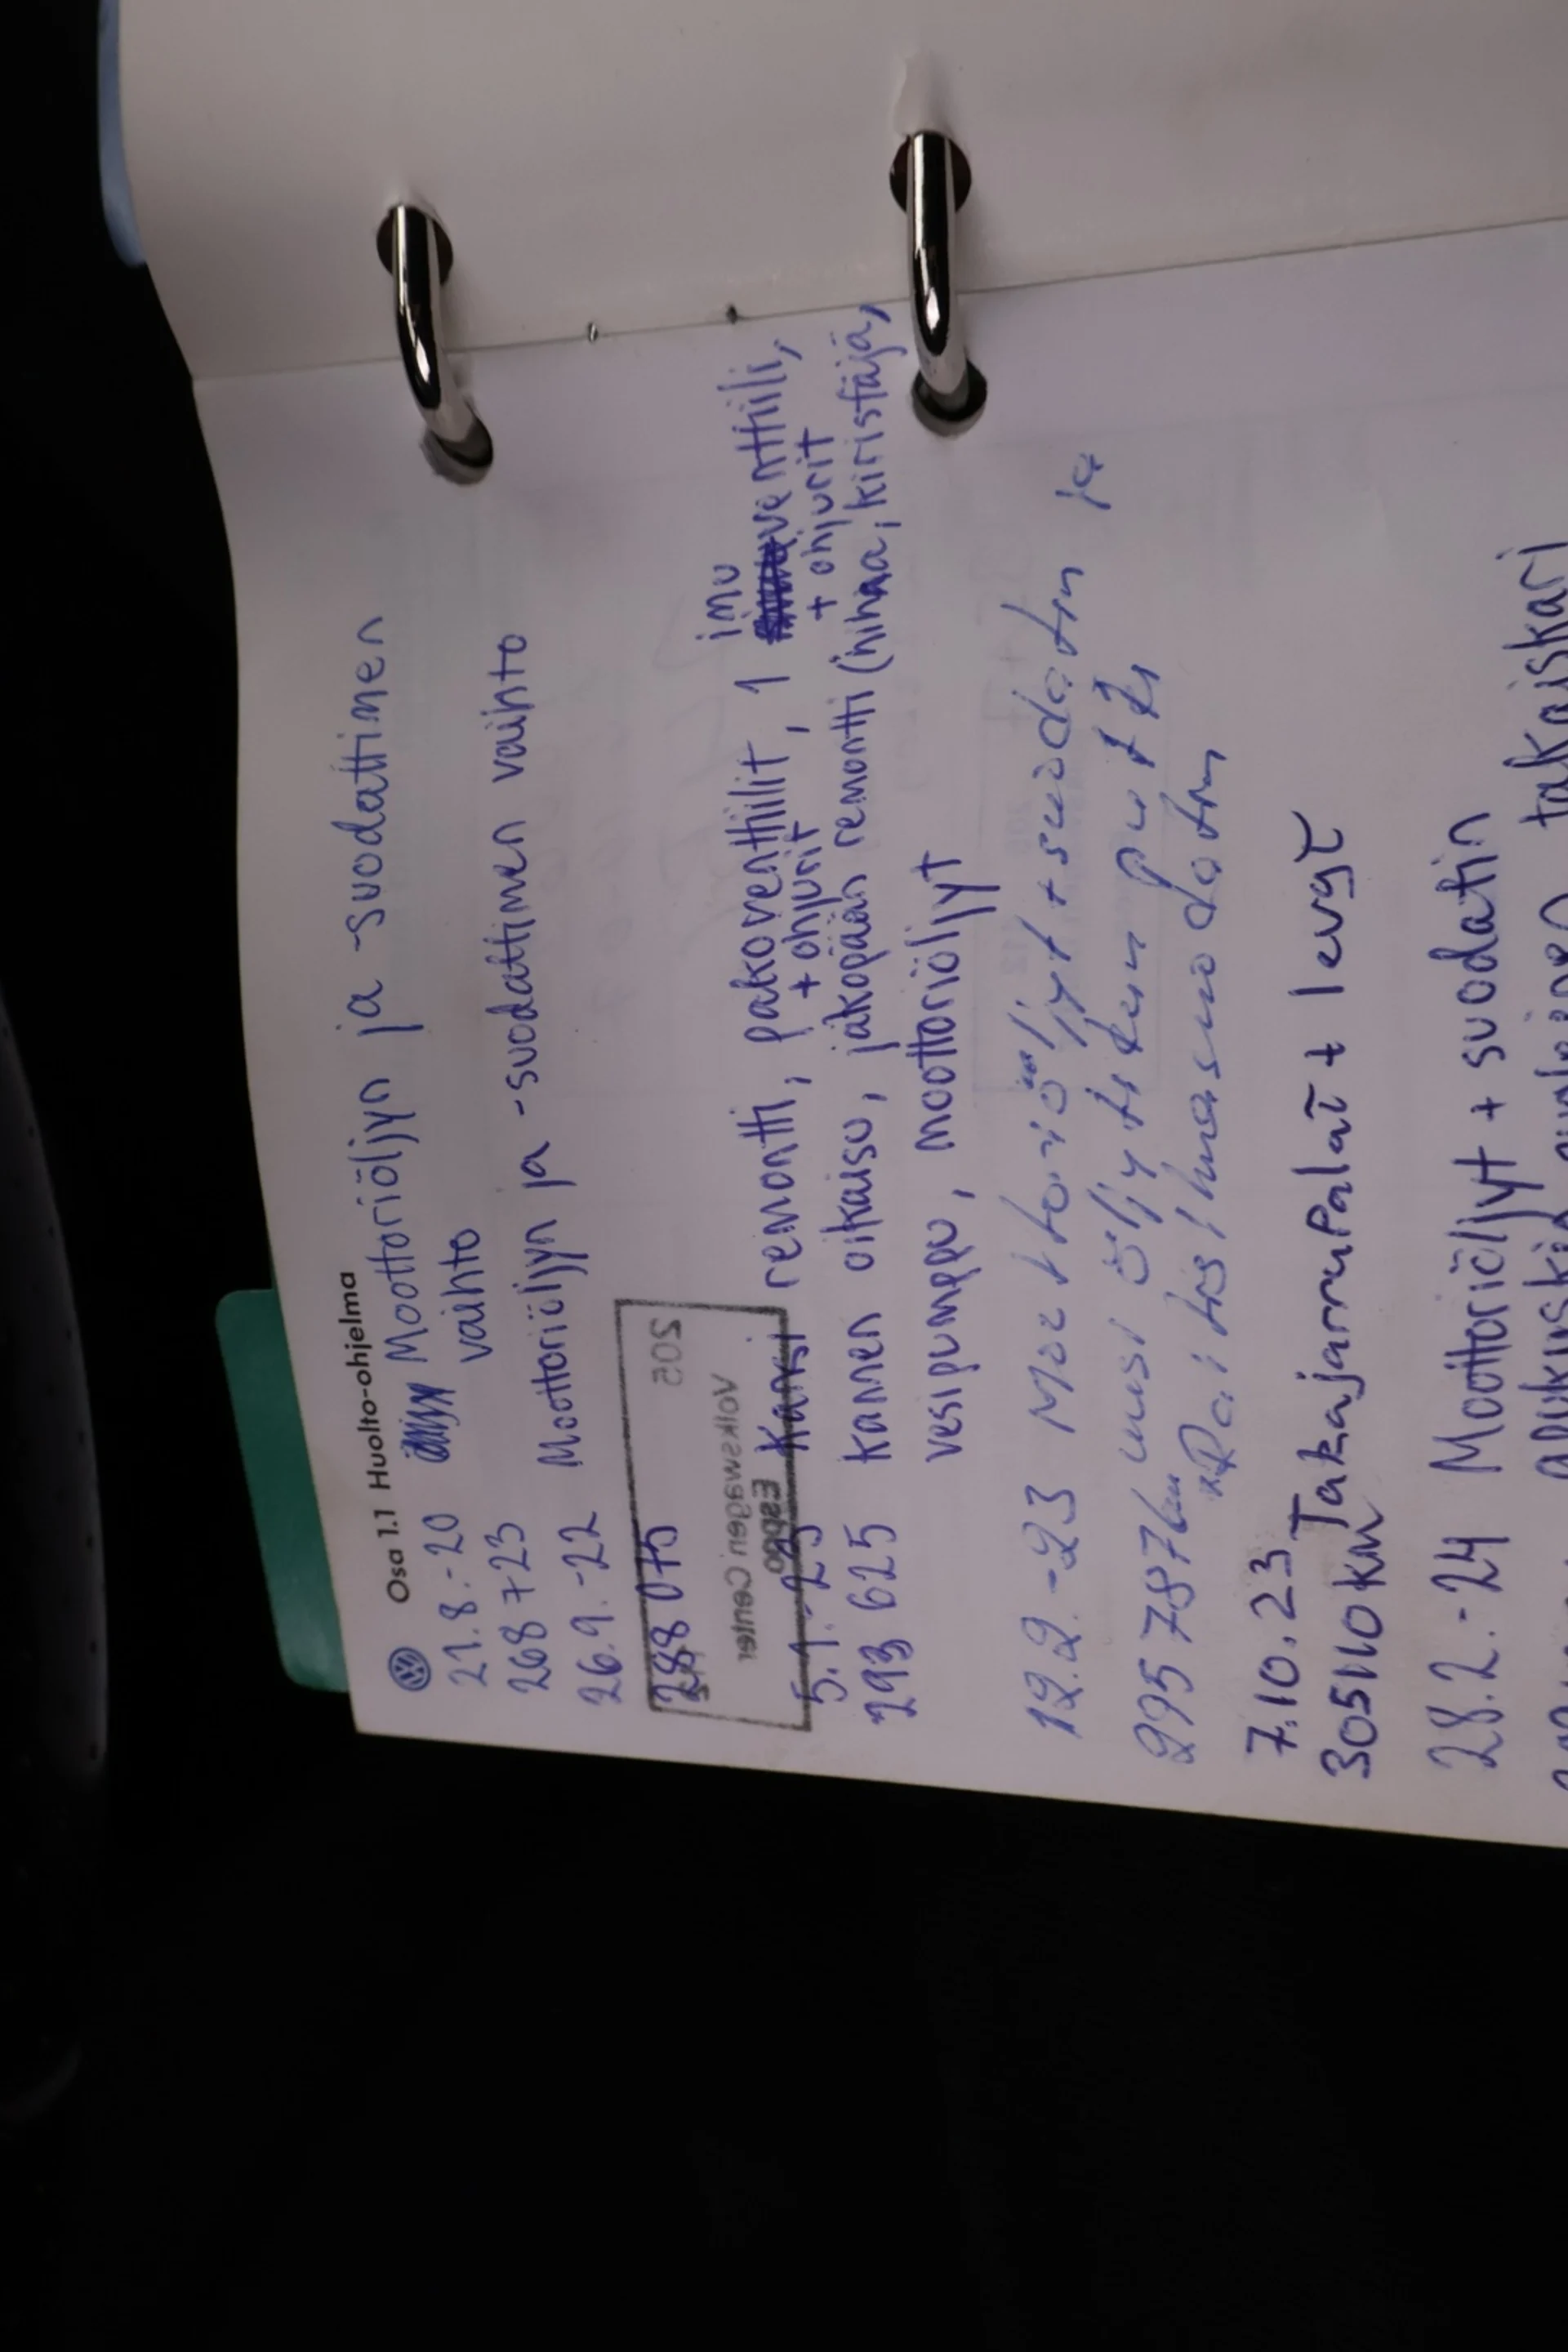 Osa 1.1 Huolto-ohjelma
21.8.-20 Moottoriöljyn ja -suodattimen
268723 vaihto
26.9.-22 Moottoriöljyn ja -suodattimen vaihto
288075
205
Volkswagen Center
Espoo
imu
5.1.-23 Kansi remontti, pakoventtiilit, 1 venttiili,
+ ohjurit + ohjurit
293 625 kannen oikaisu, jakopään remontti (hihna, kiristäjä,
vesipumpu, moottoriöljyt
12.2.-23 Moottoriöljyt + suodatin ja
295787km uusi öljytikun putki
Raitisilmasuodatin
7.10.23 Takajarrupalat + levyt
305110km
28.2.-24 Moottoriöljyt + suodatin
apukuskin puoleinen takaiskari